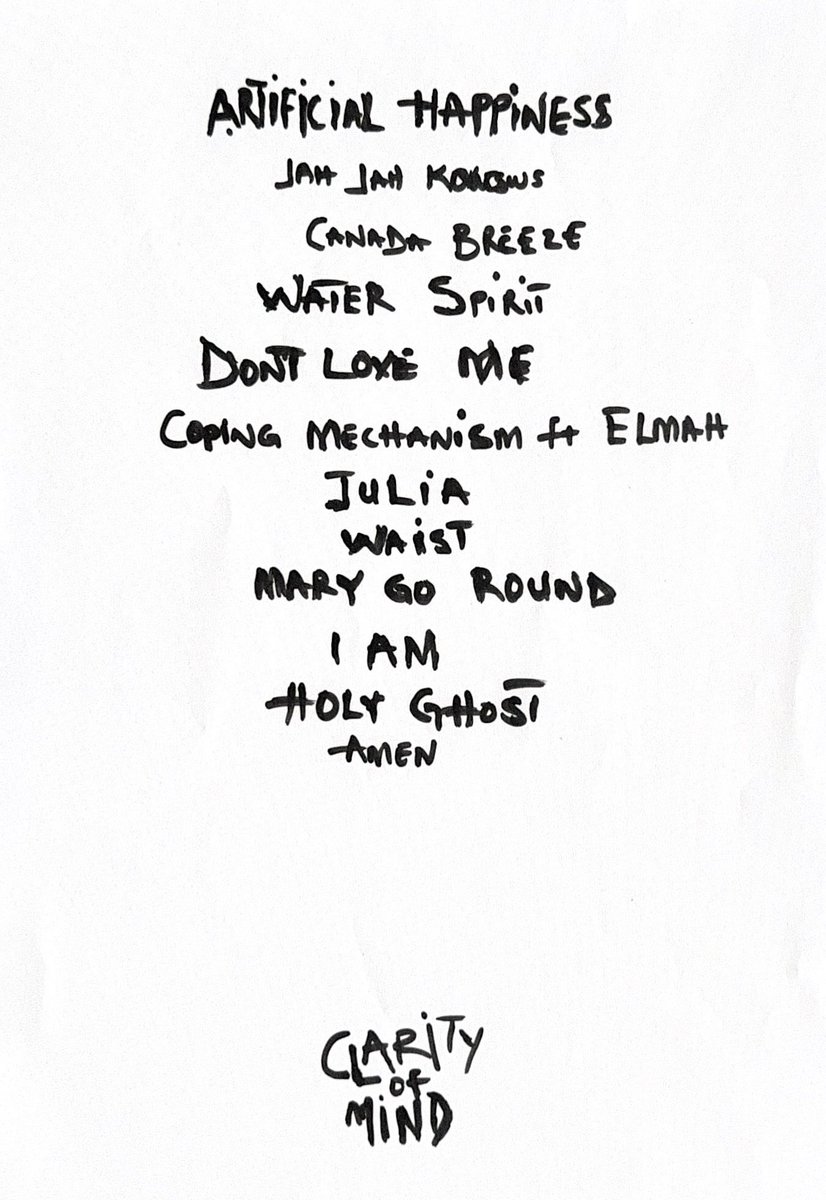 ARTiFiCiAL HAPPiNESS
JAH JAH KNOWS
CANADA BREEZE
WATER SPiRiT
DONT LOVE ME
COPING MECHANiSM ft ELMAH
JULiA
WAiST
MARY GO ROUND
I AM
HOLY GHOST
AMEN
CLARiTY
of
MiND